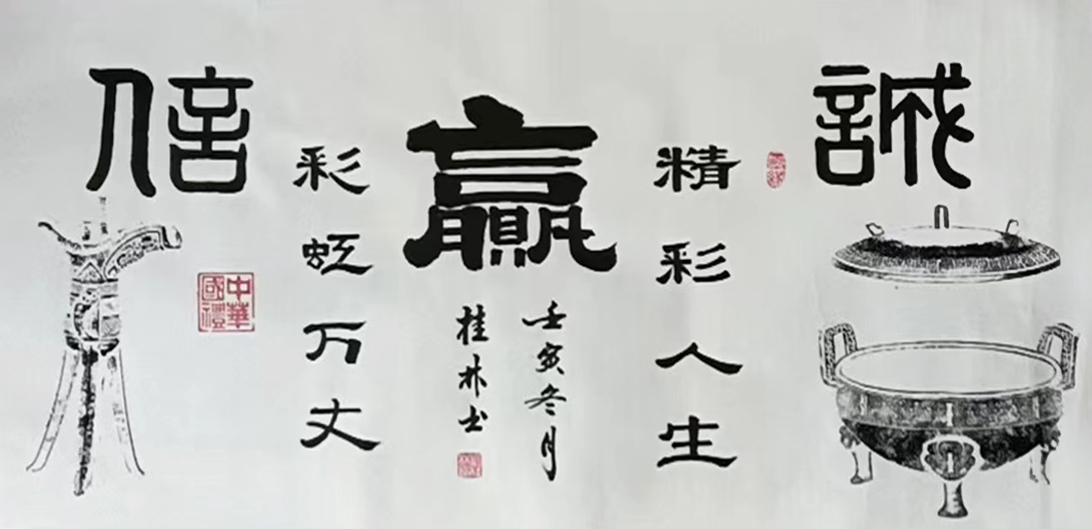 誠
精彩人生
贏
壬寅冬月
桂林书
彩虹万丈
信
中華
國禮